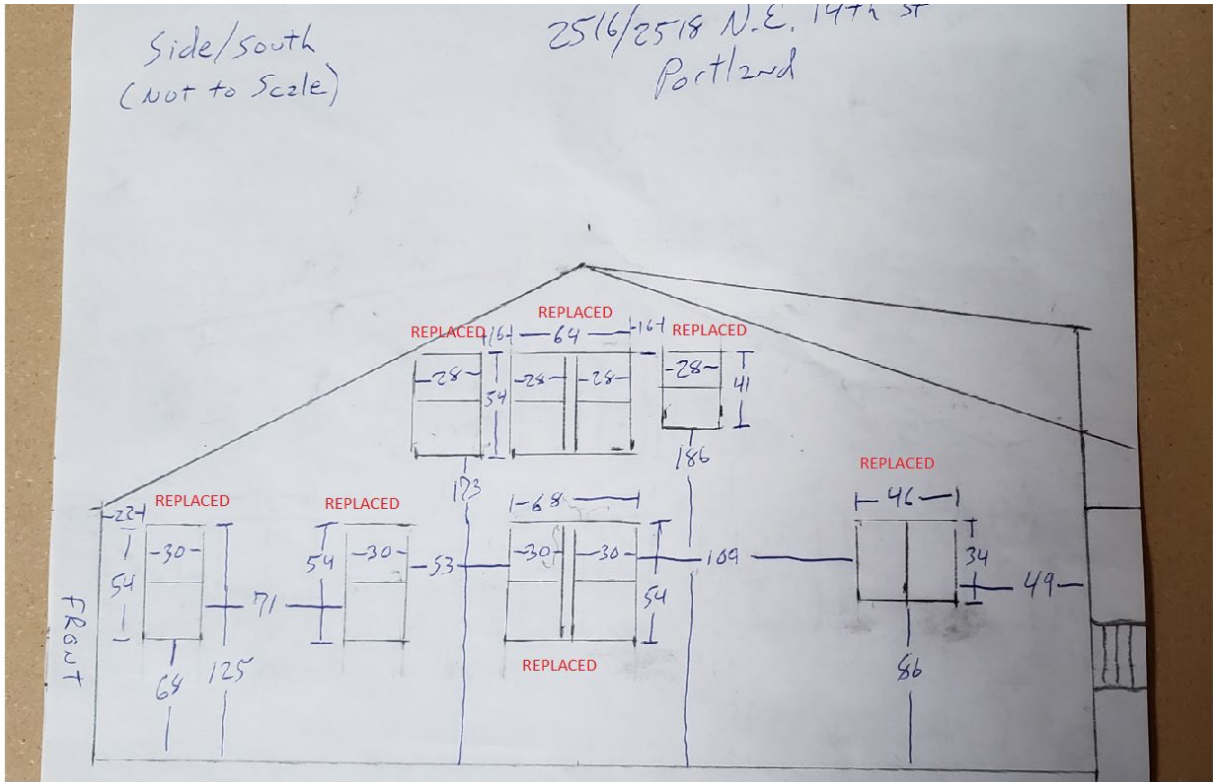 Side/South
(Not to Scale)
2516/2518 N.E. 14th St
Portland
REPLACED
REPLACED
REPLACED
16
64
16
28
54
28
28
28
41
173
186
REPLACED
REPLACED
REPLACED
22
68
46
54
30
54
30
53
30
30
109
34
54
71
49
FRONT
68
125
REPLACED
86